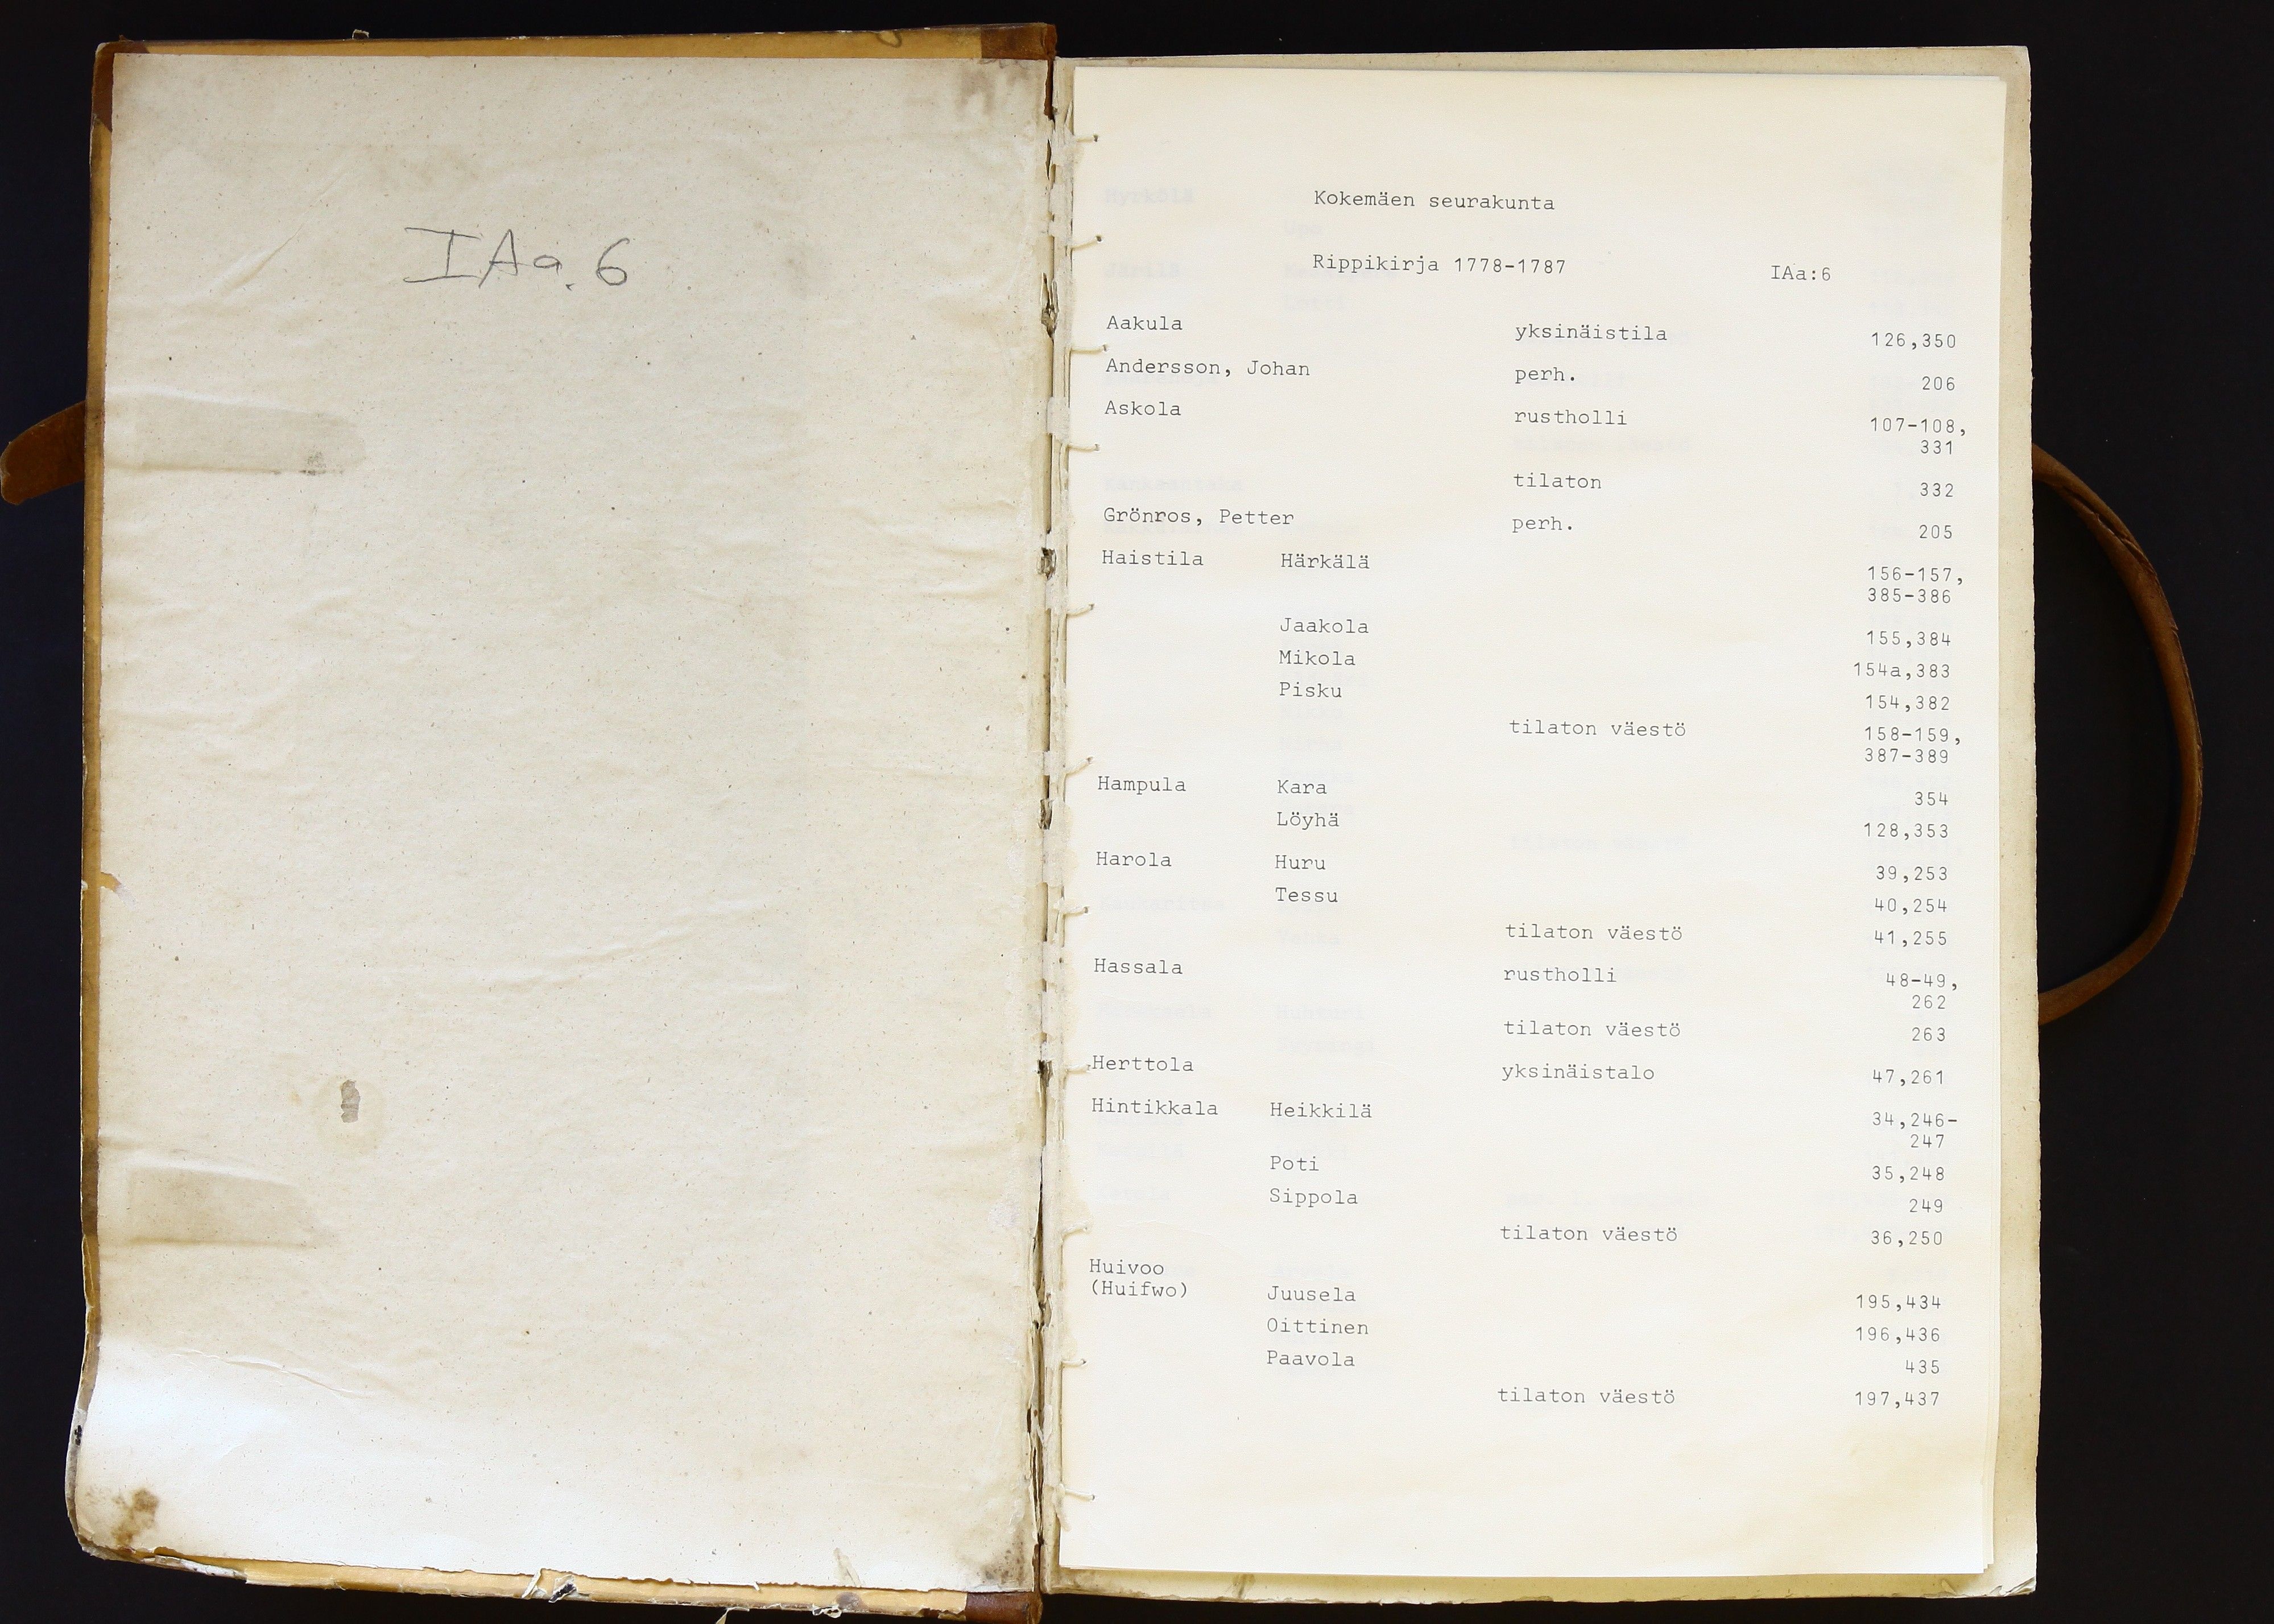 IAa.6
Kokemäen seurakunta
Rippikirja 1778-1787 IAa:6
Aakula yksinäistila 126,350
Andersson, Johan perh. 206
Askola rustholli 107-108,
331
tilaton 332
Grönros, Petter perh. 205
Haistila Härkälä 156-157,
385-386
Jaakola 155,384
Mikola 154a,383
Pisku 154,382
tilaton väestö 158-159,
387-389
Hampula Kara 354
Löyhä 128,353
Harola Huru 39,253
Tessu 40,254
tilaton väestö 41,255
Hassala rustholli 48-49,
262
tilaton väestö 263
Herttola yksinäistalo 47,261
Hintikkala Heikkilä 34,246-
247
Poti 35,248
Sippola 249
tilaton väestö 36,250
Huivoo
(Huifwo) Juusela 195,434
Oittinen 196,436
Paavola 435
tilaton väestö 197,437